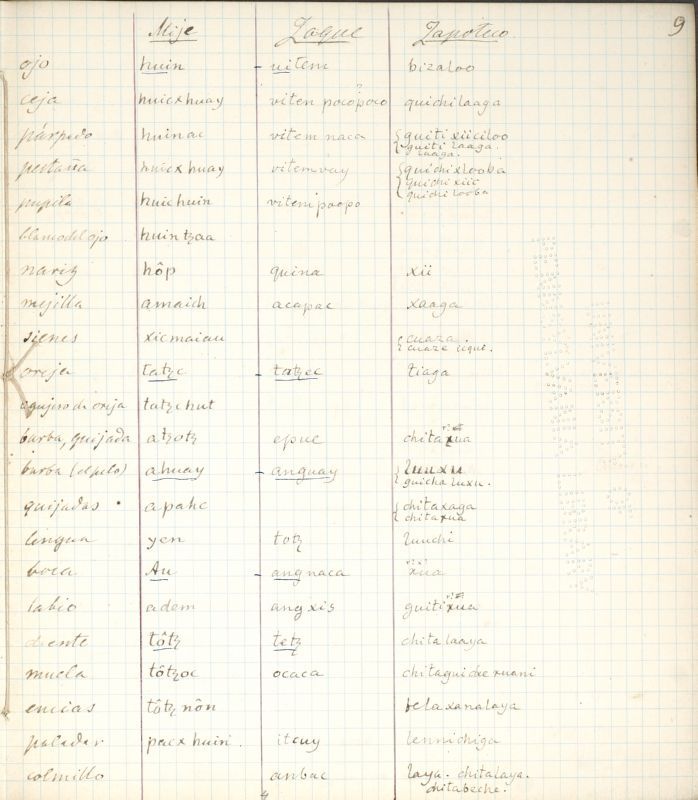 9
Mije Zoque Zapoteco
ojo huin - uitem bizaloo
ceja huicxhuay viten pocopoco quichilaaga
párpado huinac vitem naca { guiti xiiciloo
guiti laaga.
laaga.
pestaña huicx huay vitemvay { quichi x looba
quichi xiii
quichi looba
pupila huichuin vitem popo
huintzaa
nariz hôp quina xii
mejilla amaich acapac xaaga
sienes xicmaiau { cuaza.
cuaze
oreja tatzc - tatzec tiaga
agujero de oreja tatzchut
barba, quijada atzotz epue chitaxua
barba (el pelo) ahuay - anguay { luuxu
guicha luxu.
quijadas apahc { chitaxaga
chitaxua
lengua yen totz luuchi
boca Au - angnaca xua
labio adem angxis guitixua
diente tôtz tetz chitalaaya
muela tôtzoc ococa chitaguiche ruani
encias tôtz nôn belaxanalaya
paladar pacx huin. itcuy lennichiga
colmillo anbac laya. chitalaya.
chitabeche.